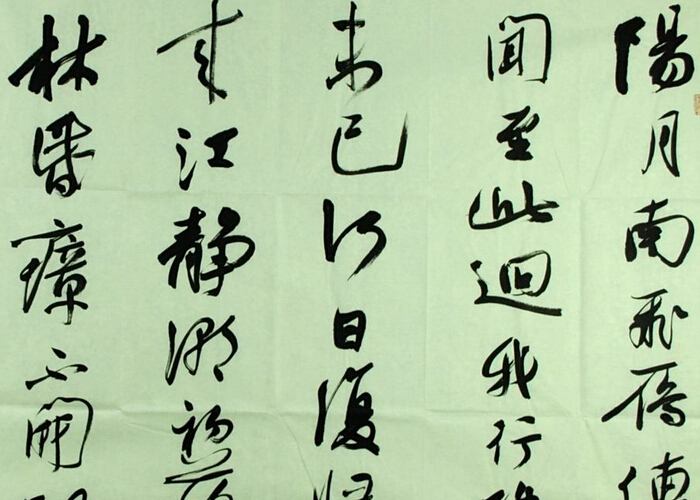 陽月南飛雁傳
聞至此迴我行
未已何日復歸
来江静潮初落
林昏瘴不開